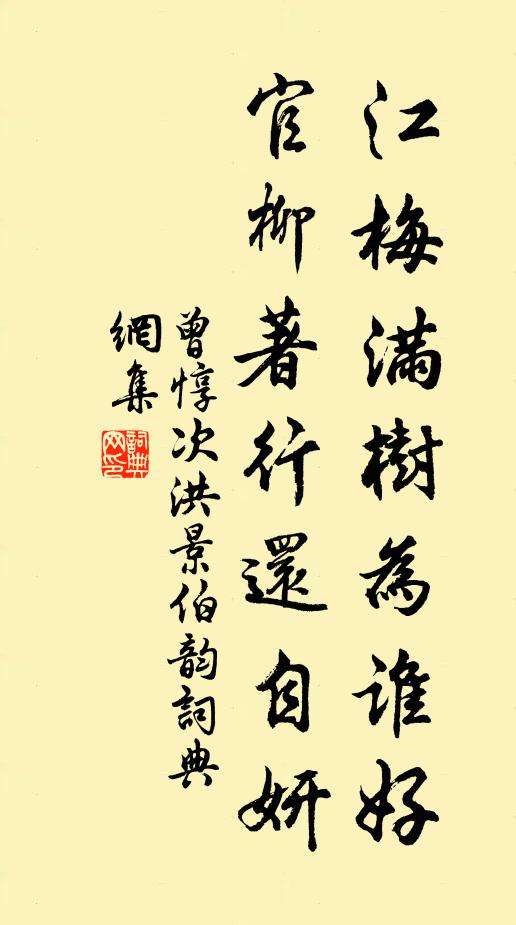 江梅滿樹為誰好
官柳著行還自妍
曾惇次洪景伯韵詞典
網集
詞典網印